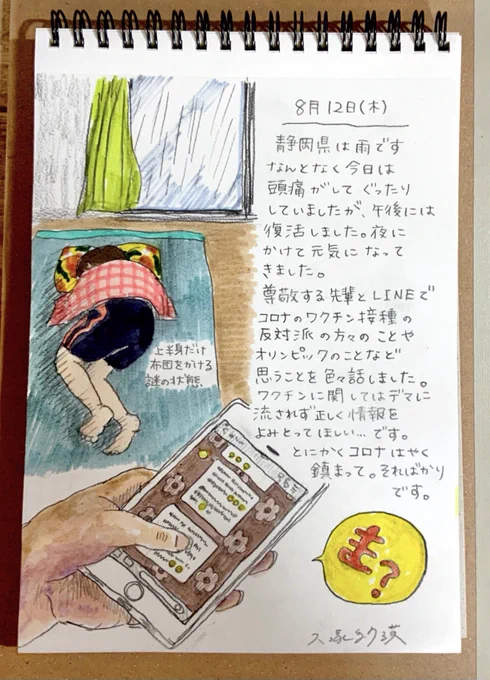 8月12日(木)
静岡県は雨です
なんとなく今日は
頭痛がして ぐったり
していましたが、午後には
復活しました。夜に
かけて元気になって
きました。
尊敬する先輩とLINEで
コロナのワクチン接種の
反対派の方々のことや
オリンピックのことなど
思うことを色々話しました。
ワクチンに関してはデマに
流されず正しく情報を
よみとってほしい…です。
とにかくコロナはやく
鎮まって。そればかり
です。
上半身だけ
布団をかける
謎の状態
ま?